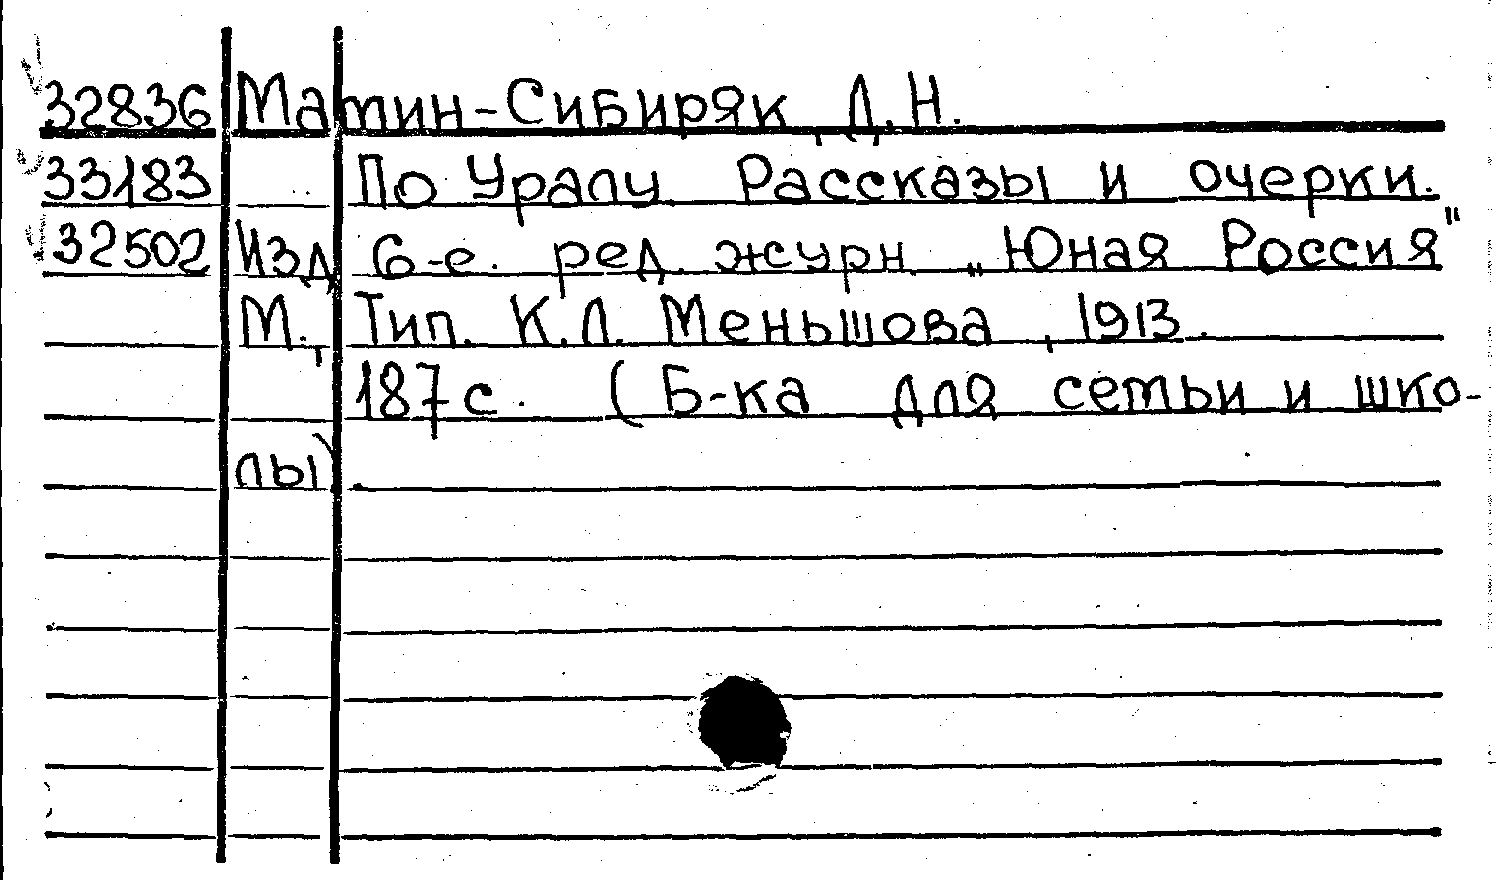 32836 Матин-Сибиряк, Д. Н.
33183 По Уралу Рассказы и очерки.
32502 Изд. 6-е. ред. журн. „Юная Россия"
М., Тип. К.Л. Меньшова, 1913.
187 с. (Б-ка для сетьи и шко-
лы).